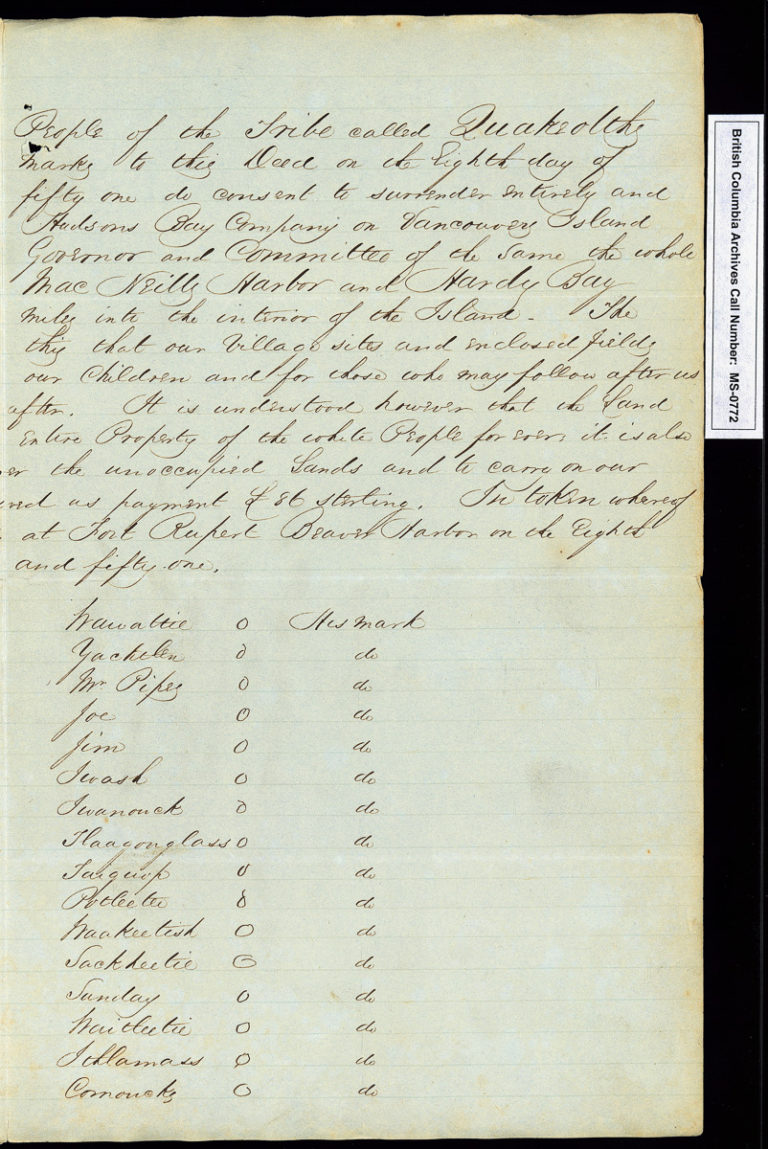 People of the Tribe called Quakeolths
marks to this Deed on the Eighth day of
fifty one do consent to surrender entirely and
Hudsons Bay Company on Vancouvers Island
Governor and Committee of the same the whole
Mac Neills Harbor and Hardy Bay
miles into the interior of the Island - The
this that our Village sites and enclosed fields
our Children and for those who may follow after us
after. It is understood however that the Land
Entire Property of the white People for ever, it is also
er the unoccupied Lands and to carry on our
ved as payment £86 sterling. In token whereof
at Fort Rupert Beaver Harbor on the Eighth
and fifty-one.
Wawattie O His mark
Yackelen O do
Mr Pipes O do
Joe O do
Jim O do
Iwash O do
Iwanouck O do
Tlaagonglass O do
O do
O do
Waakeetish O do
Sackheetie O do
Sunday O do
Wautleetie O do
Ithlamass O do
Comoucks O do
British Columbia Archives Call Number: MS-0772